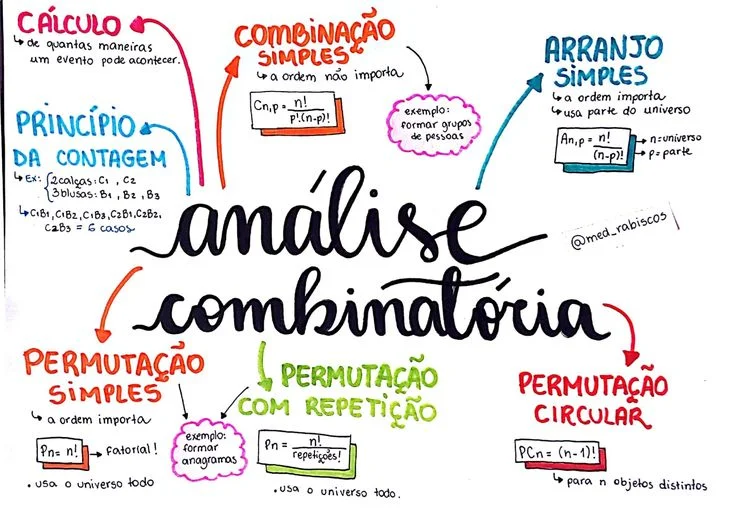 CÁLCULO
↳ de quantas maneiras
um evento pode acontecer.
PRINCÍPIO
DA CONTAGEM
↳ Ex: { 2 calças: C1 , C2
3 blusas: B1 , B2 , B3
↳ C1B1, C1B2, C1B3, C2B1, C2B2,
C2B3 = 6 casos
COMBINAÇÃO
SIMPLES
↳ a ordem não importa
Cn,p = n!
p!.(n-p)!
exemplo:
formar grupos
de pessoas
ARRANJO
SIMPLES
↳ a ordem importa
↳ usa parte do universo
An,p = n!
(n-p)!
→ n=universo
→ p= parte
análise
combinatória
@med_rabiscos
PERMUTAÇÃO
SIMPLES
↳ a ordem importa
Pn= n! → fatorial!
. usa o universo todo
exemplo:
formar
anagramas
PERMUTAÇÃO
COM REPETIÇÃO
Pn = n!
repetições!
. usa o universo todo.
PERMUTAÇÃO
CIRCULAR
PCn = (n-1)!
↳ para n objetos distintos